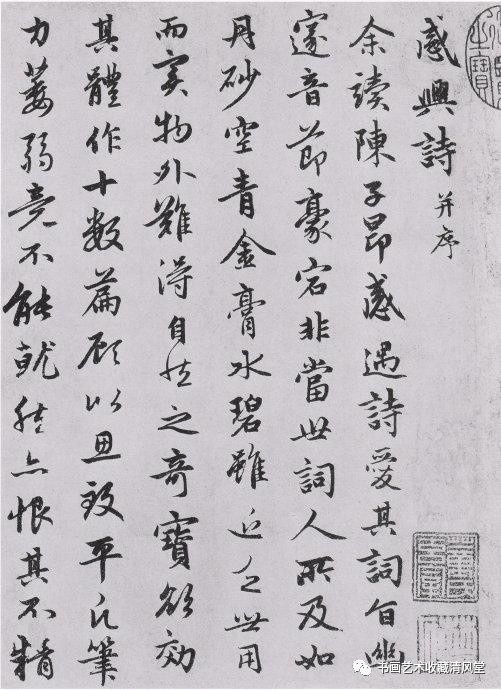 感興詩 并序
余讀陳子昂感遇詩愛其詞旨幽
邃音節豪宕非當世詞人所及如
丹砂空青金膏水碧雖近乏世用
而實物外難得自然之奇寶欲効
其體作十數篇顧以思致平凡筆
力萎弱竟不能就然亦恨其不精
之寶
书画艺术收藏清风堂